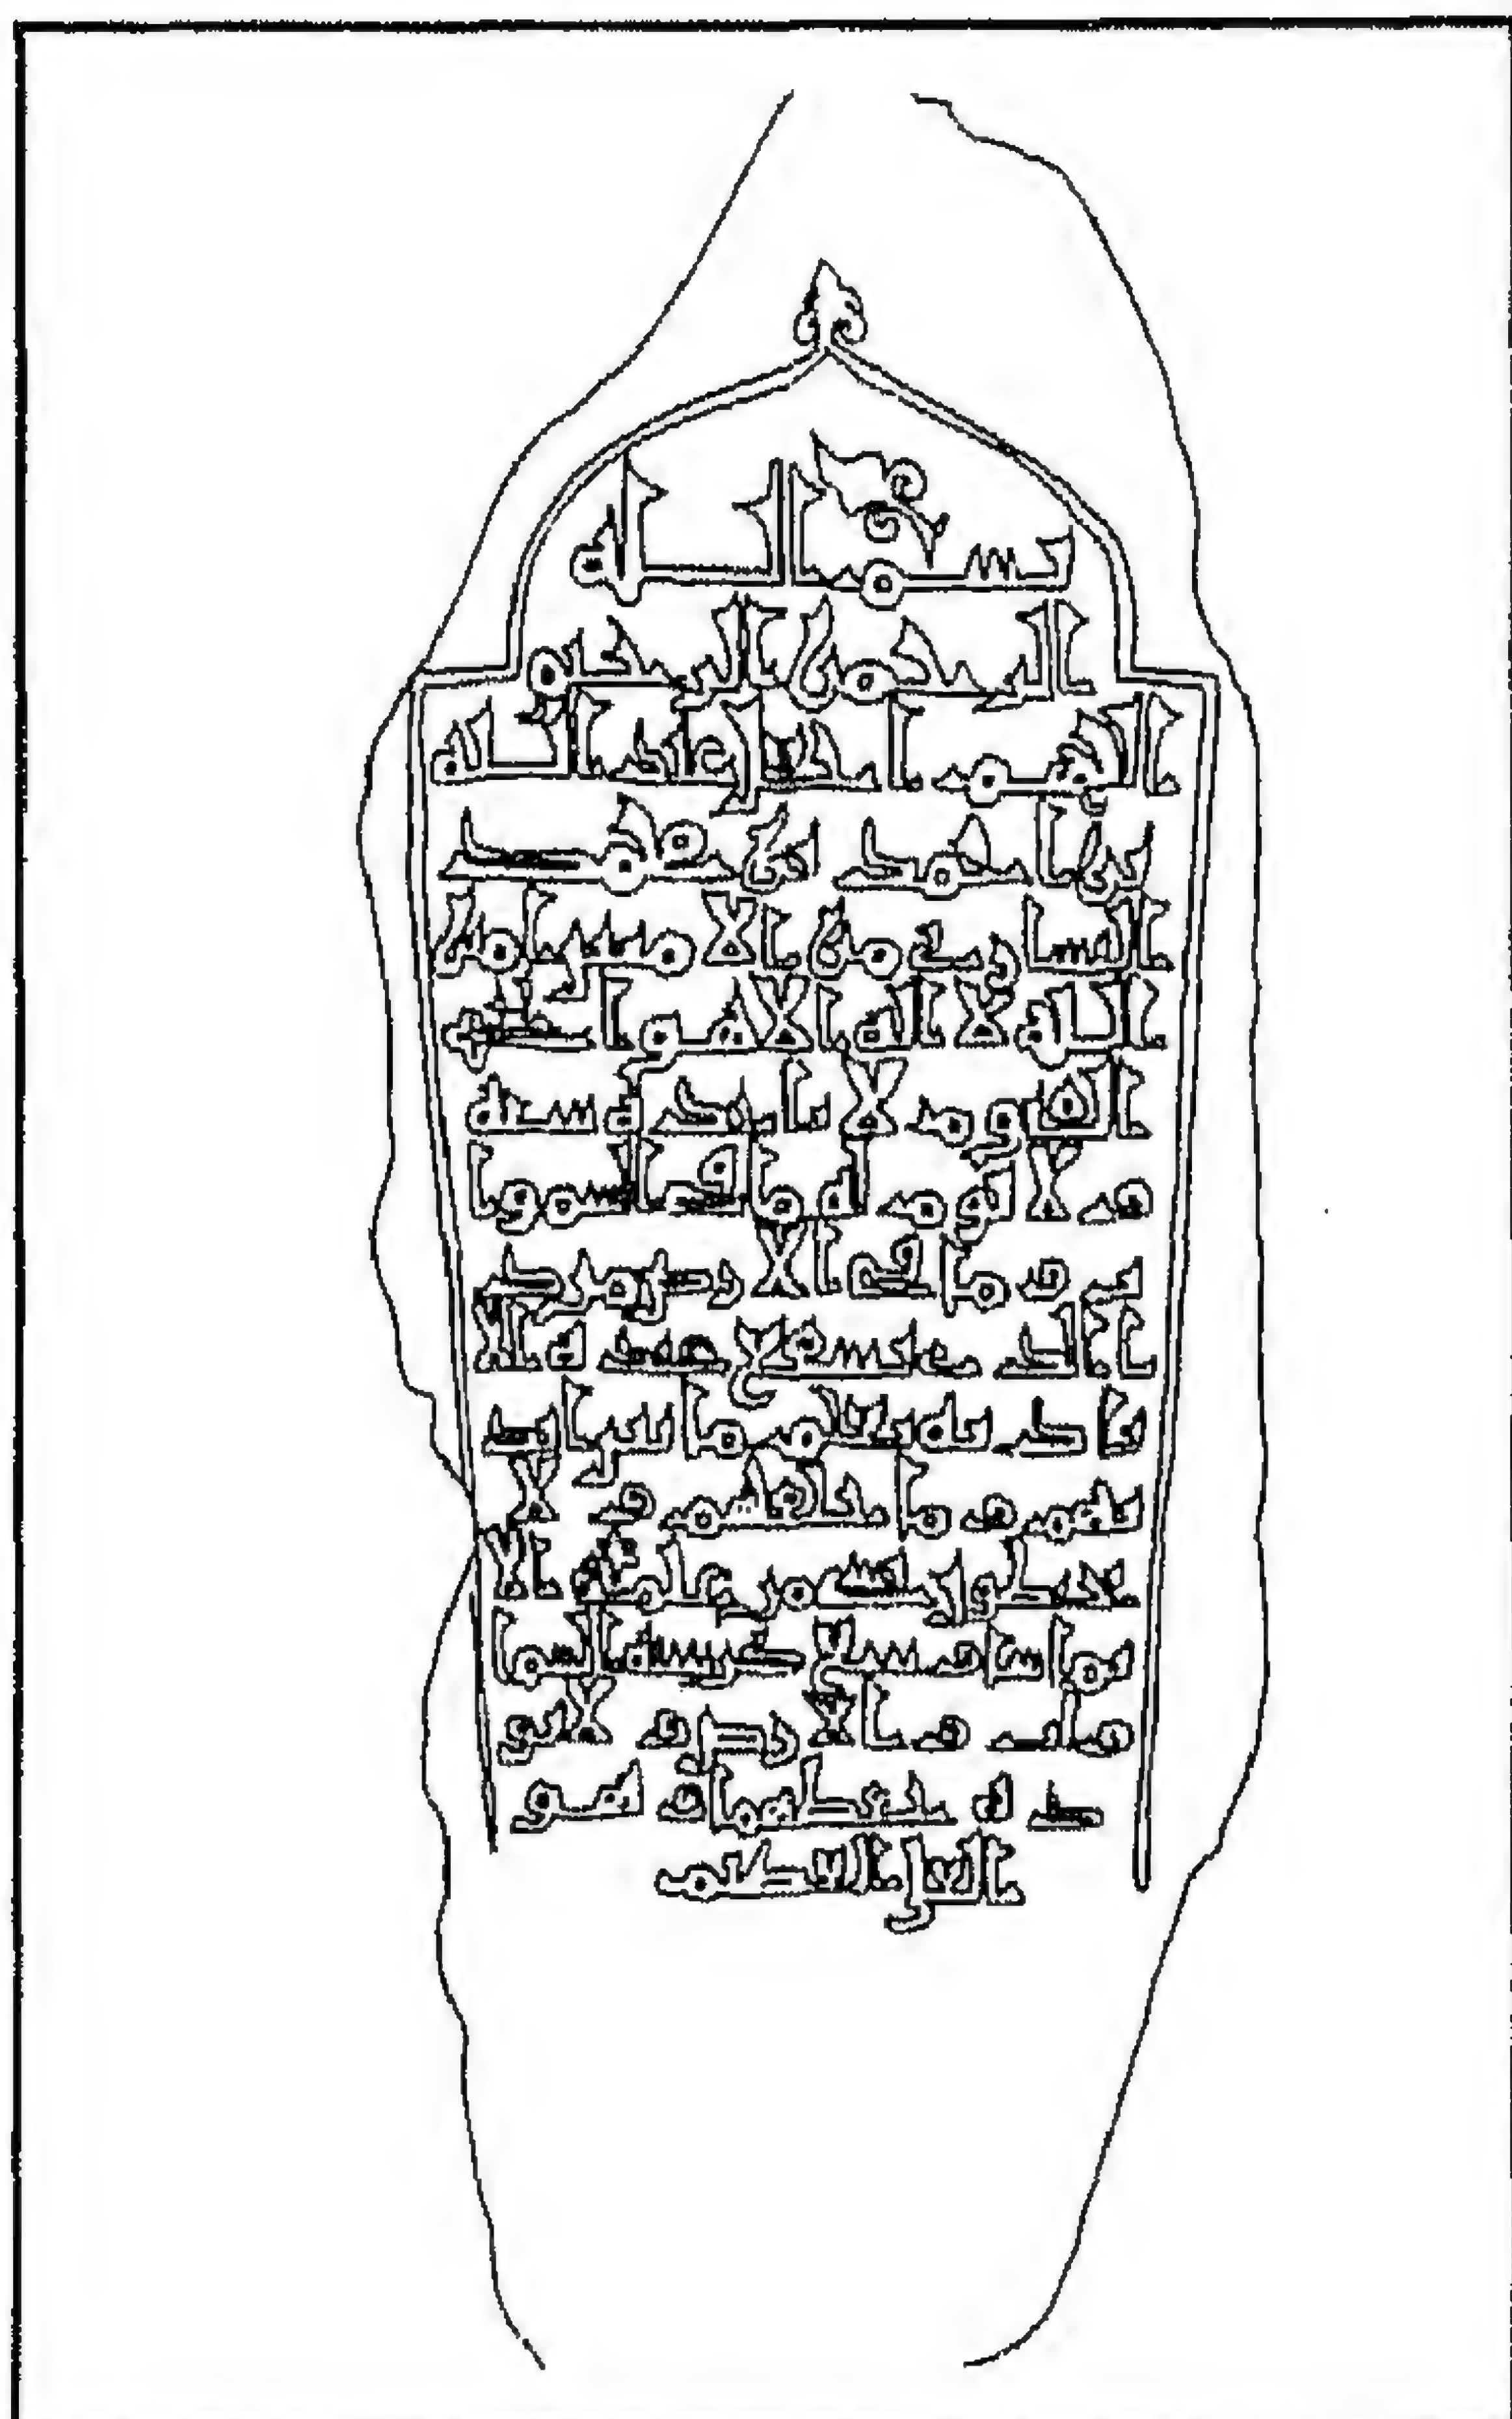 بسم الله
الرحمن الرحيم
اللهم اغفر لعبد الله
بن احمد بن محمد
من الا
الله لا اله الا هو الحي
القيوم لا تاخذه سنة
و لا نوم له ما في السموا
ت و ما في الارض من ذ
ا الذي يشفع عنده الا
باذنه يعلم ما بين ايد
يهم و ما خلفهم و لا
يحيطون بشي من علمه الا
بما شا وسع كرسيه السما
وات و الارض و لا يو
ده حفظهما و هو
العلي العظيم